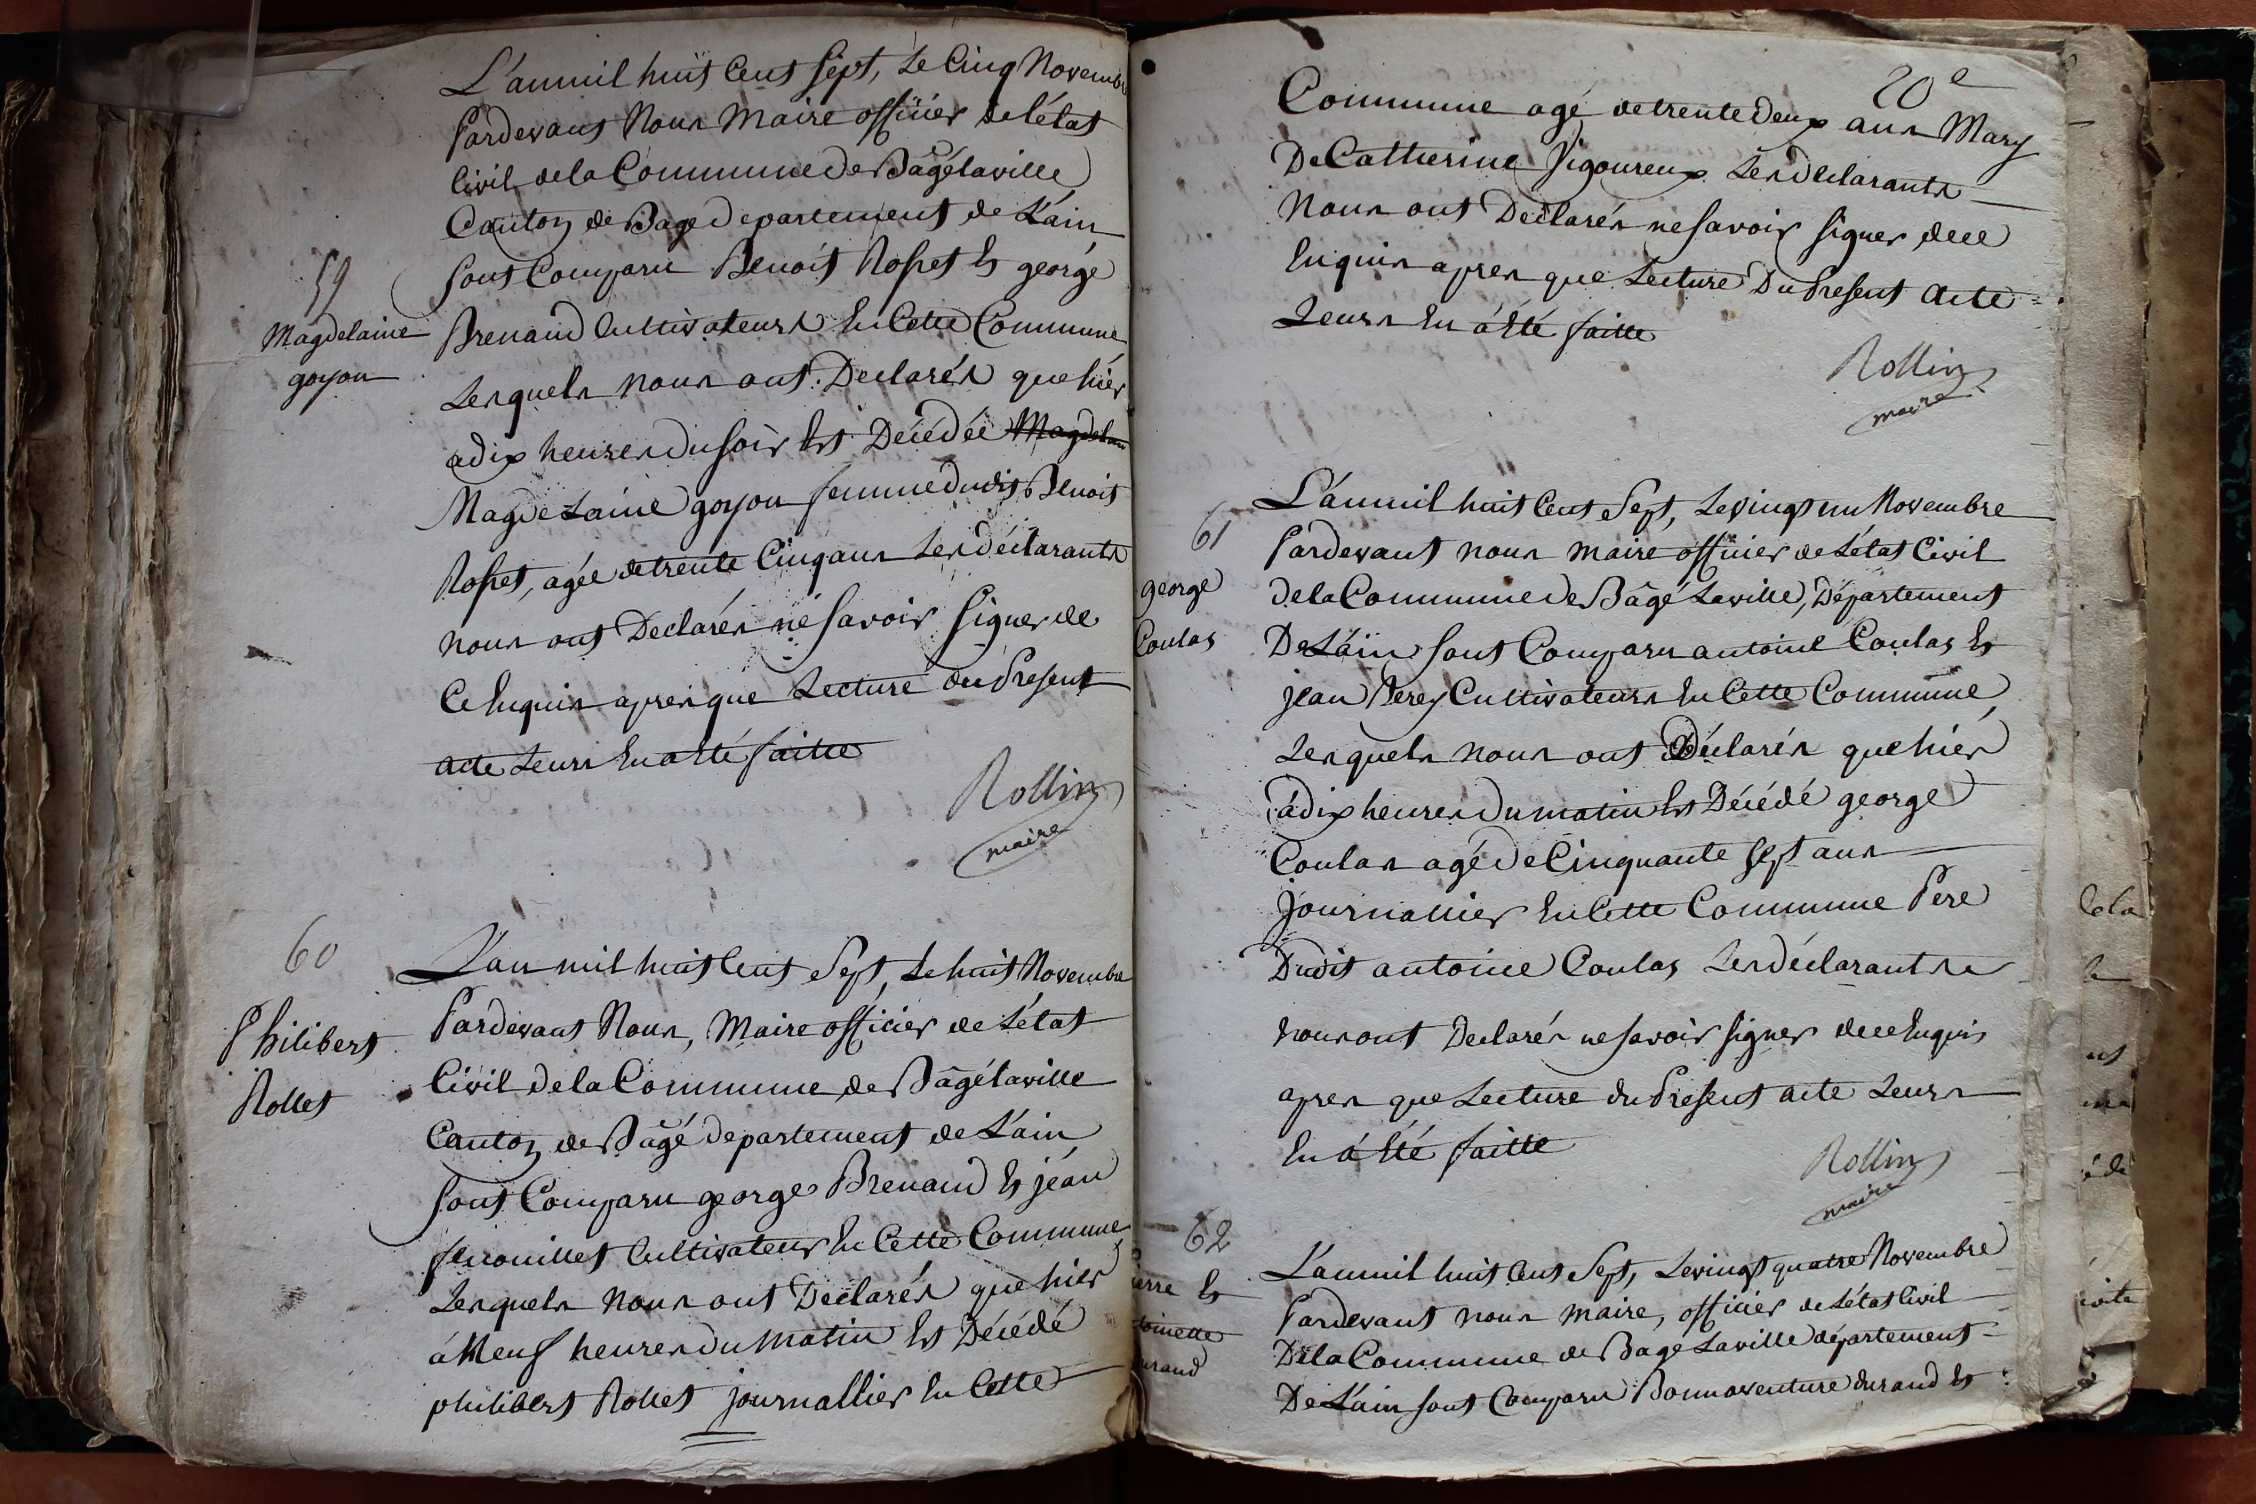 L'an mil huit Cent Sept, Le Cinq Novembre
Pardevant Nous Maire officier de l'état
Civil de la Commune de Bagé laville
Canton de Bagé departement de L'ain
Sont Comparu Benoit Rosset Et george
59
Magdelaine
goyon
Brenaud Cultivateurs En Cette Commune
Lesquels nous ont Declarés que hier
a dix heures du soir Est Décédée Magdelaine
Magdelaine goyon femme dudit Benoit
Rosset, agée de trente Cinq ans Les déclarants
nous ont Declarés ne Savoir Signer de
Ce Enquis apres que Lecture du Present
acte Leurs En a Eté faitte
Rollin
maire
60
Philibert
Rollet
L'an mil huit Cent Sept, Le huit Novembre
Pardevant Nous, Maire officier de L'état
Civil de la Commune de Bâgé laville
Canton de Bâgé departement de L'ain
Sont Comparu george Brenaud Et jean
fenouillet Cultivateurs En Cette Commune
Lesquels nous ont Declarés que hier
à Neuf heures du Matin Est Décédé
philibert Rollet journallier En Cette
20e
Commune agé de trente deux ans Mary
De Catherine Sigoureux Les declarants
Nous ont Declarés ne Savoir signer de ce
Enquis apres que Lecture Du Present acte
Leurs En a Eté faitte
Rollin
maire
61
george
Coulas
L'an mil huit Cent Sept, Le vingt un Novembre
Pardevant nous maire officier de L'état Civil
de la Commune de Bâgé Laville, Département
De L'ain sont Comparu antoine Coulas Et
jean Perey Cultivateurs En Cette Commune,
Lesquels nous ont Déclarés que hier
à dix heures du matin Est Décédé george
Coulas agé De Cinquante sept ans
journallier En Cette Commune Pere
Dudit antoine Coulas Les déclarants
nous ont Declarés ne savoir signer de ce Enquis
apres que Lecture du Present acte Leurs
En a Eté faitte
Rollin
maire
62
ierre Et
toinette
urand
L'an mil huit Cent Sept, Le vingt quatre Novembre
Pardevant nous maire, officier de L'état Civil
De la Commune de Bage Laville département
De L'ain sont Comparu Bonnaventure durand Et